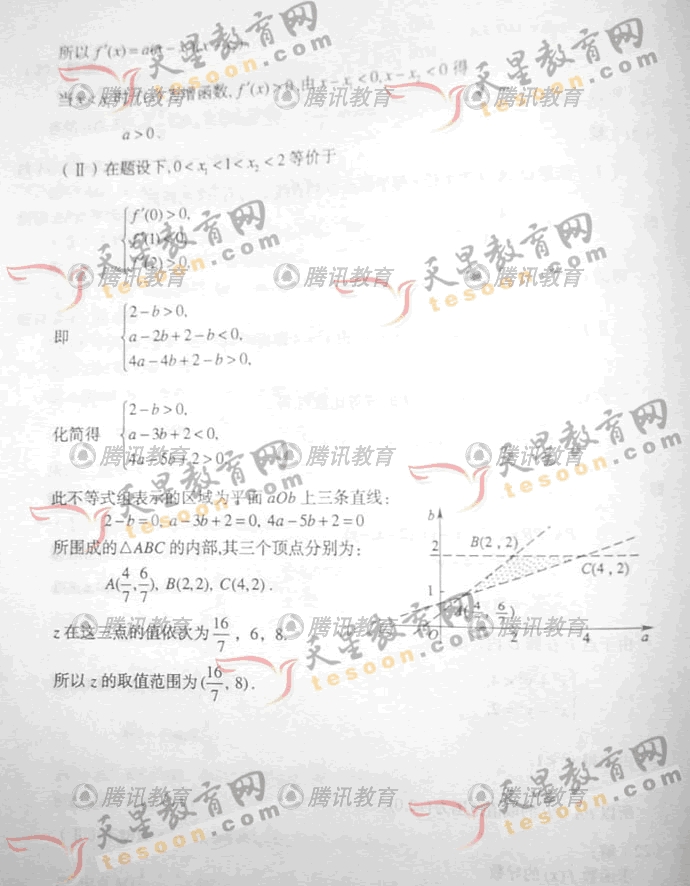 所以 f′(x)=a(x-x₁)(x-x₂).
当x<x₁时, 为增函数, f′(x)>0, 由 x-x₁<0, x-x₂<0 得
a>0.
(Ⅱ) 在题设下, 0<x₁<1<x₂<2 等价于
f′(0)>0,
f′(1)<0,
f′(2)>0.
即
2-b>0,
a-2b+2-b<0,
4a-4b+2-b>0,
化简得
2-b>0,
a-3b+2<0,
4a-5b+2>0.
此不等式组表示的区域为平面 aOb 上三条直线:
2-b=0, a-3b+2=0, 4a-5b+2=0
所围成的△ABC 的内部,其三个顶点分别为:
A(4/7, 6/7), B(2,2), C(4,2).
z 在这三点的值依次为 16/7, 6, 8.
所以 z 的取值范围为 (16/7, 8).
b
2
B(2, 2)
C(4, 2)
1
A(4/7, 6/7)
O
2
4
a
天星教育网
tesoon.com
腾讯教育